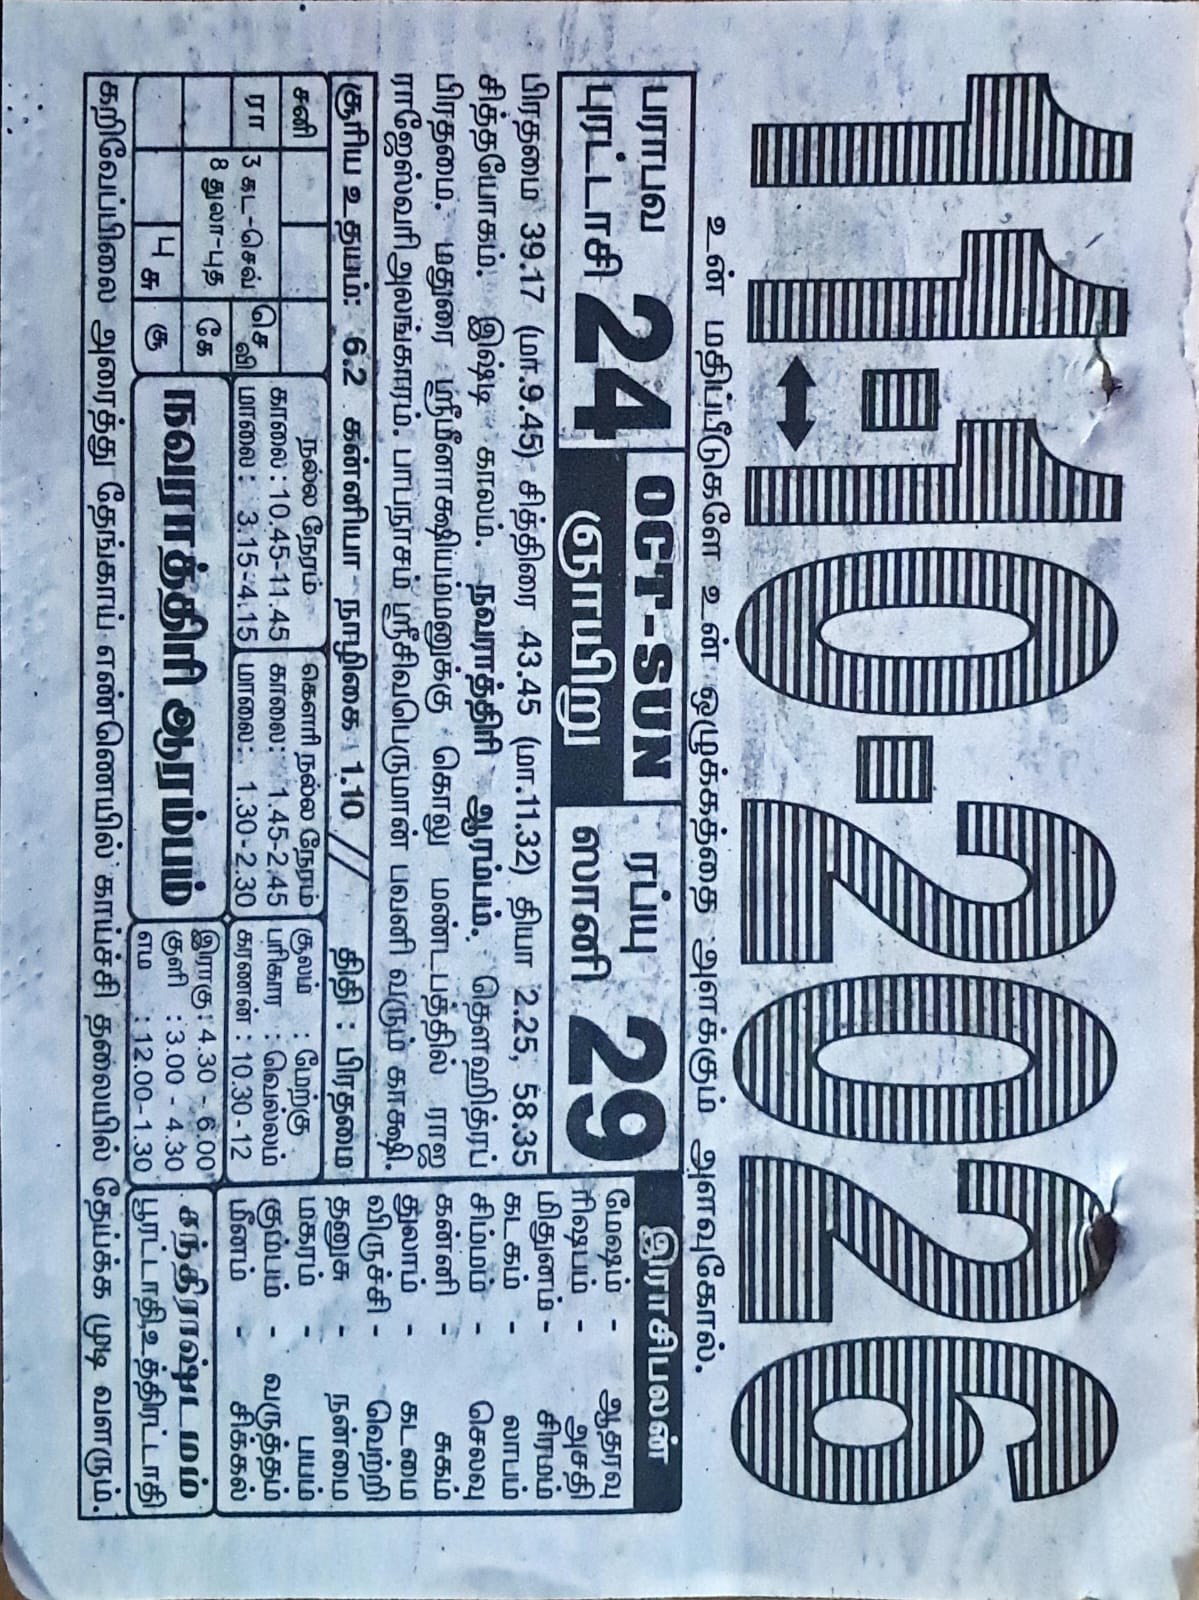 11-10-2026
உன் மதிப்பீடுகளே உன் ஒழுக்கத்தை அளக்கும் அளவுகோல்.
பராபவ
புரட்டாசி 24
OCT-SUN
ஞாயிறு
ரப்யு
ஸானி 29
பிரதமை 39.17 (மா.9.45) சித்திரை 43.45 (மா.11.32) தியா 2.25, 58.35
சித்தயோகம். இஷ்டி காலம். நவராத்திரி ஆரம்பம். தெளஹித்ரப்
பிரதமை. மதுரை ஸ்ரீமீனாக்ஷியம்மனுக்கு கொலு மண்டபத்தில் ராஜ
ராஜேஸ்வரி அலங்காரம். பாபநாசம் ஸ்ரீசிவபெருமான் பவனி வரும் காக்ஷி.
சூரிய உதயம்: 6.2 கன்னியா நாழிகை 1.10 // திதி : பிரதமை
சனி
ரா
3 கட-செவ்
8 துலா-புத
செ
வி
கே
4 சு
கு
நல்ல நேரம்
காலை : 10.45-11.45
மாலை : 3.15-4.15
கெளரி நல்ல நேரம்
காலை: 1.45-2.45
மாலை: 1.30-2.30
சூலம் : மேற்கு
பரிகார : வெல்லம்
கரணன் : 10.30-12
நவராத்திரி ஆரம்பம்
இராகு : 4.30 - 6.00
குளி : 3.00 - 4.30
எம : 12.00-1.30
இராசிபலன்
மேஷம் - ஆதரவு
ரிஷபம் - அசதி
மிதுனம் - சிரமம்
கடகம் - லாபம்
சிம்மம் - செலவு
கன்னி - சுகம்
துலாம் - கடமை
விருச்சி - வெற்றி
தனுசு - நன்மை
மகரம் - பயம்
கும்பம் - வருத்தம்
மீனம் - சிக்கல்
சந்திராஷ்டமம்
பூரட்டாதி,உத்திரட்டாதி
கறிவேப்பிலை அரைத்து தேங்காய் எண்ணெயில் காய்ச்சி தலையில் தேய்க்க முடி வளரும்.